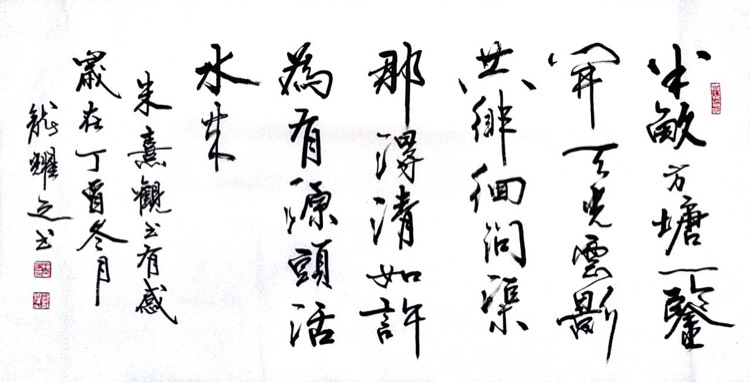 半畝方塘一鑒
開天光雲影
共徘徊問渠
那得清如許
為有源頭活
水來
朱熹觀書有感
歲在丁酉冬月
龍耀之書